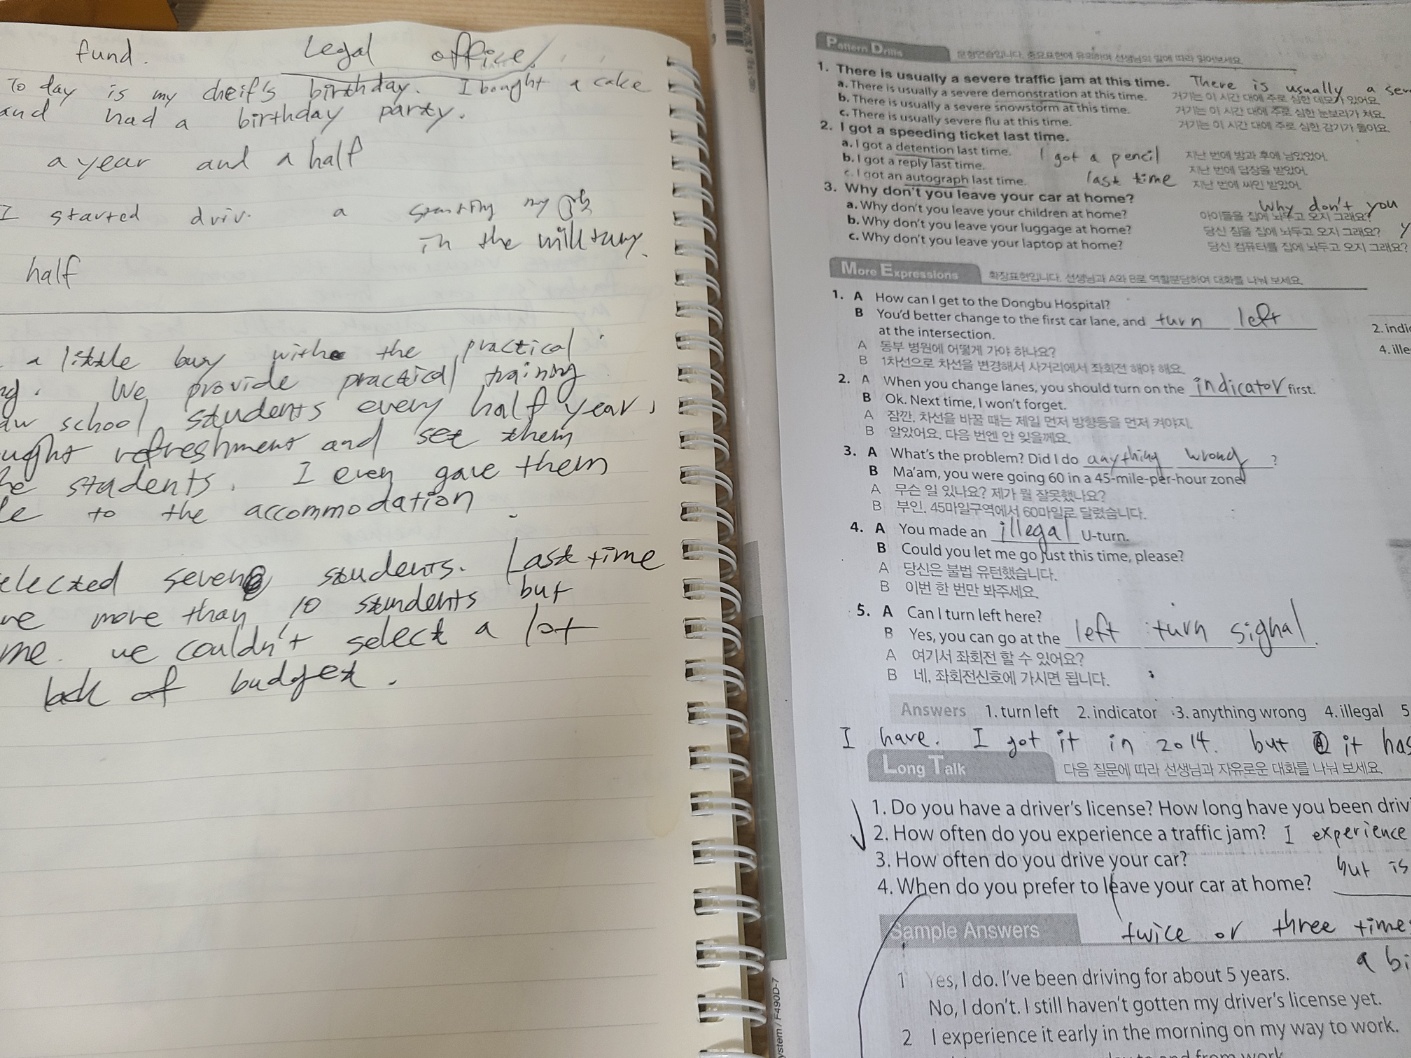 fund. Legal office
To day is my cheif's birthday. I bought a cake
and had a birthday party.
a year and a half
I started driv. a starting my job
in the military.
half
a little busy with the practical
We provide practical training
school students every half year,
refreshment and set them
students. I even gave them
to the accommodation.
seven students. Last time
more than 10 students but
we couldn't select a lot
lack of budget.
Pattern Drills
1. There is usually a severe traffic jam at this time. There is usually a
a. There is usually a severe demonstration at this time. 거기는 이 시간 대에 주로 심한 데모가 있어요.
b. There is usually a severe snowstorm at this time. 거기는 이 시간 대에 주로 심한 눈보라가 쳐요.
c. There is usually severe flu at this time. 거기는 이 시간 대에 주로 심한 감기가 돌아요.
2. I got a speeding ticket last time.
a. I got a detention last time. I got a pencil 지난 번에 방과 후에 남았었어.
b. I got a reply last time. last time 지난 번에 답장을 받았어.
c. I got an autograph last time. 지난 번에 싸인 받았어.
3. Why don't you leave your car at home? Why don't you
a. Why don't you leave your children at home? 아이들을 집에 놔두고 오지 그래요?
b. Why don't you leave your luggage at home? 당신 짐을 집에 놔두고 오지 그래요?
c. Why don't you leave your laptop at home? 당신 컴퓨터를 집에 놔두고 오지 그래요?
More Expressions 확장표현입니다. 선생님과 A와 B로 역할분담하여 대화를 나눠 보세요.
1. A How can I get to the Dongbu Hospital?
B You'd better change to the first car lane, and turn left
at the intersection.
A 동부 병원에 어떻게 가야 하나요?
B 1차선으로 차선을 변경해서 사거리에서 좌회전 해야 해요.
2. A When you change lanes, you should turn on the indicator first.
B Ok. Next time, I won't forget.
A 잠깐, 차선을 바꿀 때는 제일 먼저 방향등을 먼저 켜야지.
B 알았어요, 다음 번엔 안 잊을께요.
3. A What's the problem? Did I do anything wrong ?
B Ma'am, you were going 60 in a 45-mile-per-hour zone.
A 무슨 일 있나요? 제가 뭘 잘못했나요?
B 부인, 45마일구역에서 60마일로 달렸습니다.
4. A You made an illegal U-turn.
B Could you let me go just this time, please?
A 당신은 불법 유턴했습니다.
B 이번 한 번만 봐주세요.
5. A Can I turn left here?
B Yes, you can go at the left turn signal.
A 여기서 좌회전 할 수 있어요?
B 네, 좌회전신호에 가시면 됩니다.
2. indi
4. ille
Answers 1. turn left 2. indicator 3. anything wrong 4. illegal 5
I have. I got it in 2014. but it has
Long Talk 다음 질문에 따라 선생님과 자유로운 대화를 나눠 보세요.
1. Do you have a driver's license? How long have you been driv
2. How often do you experience a traffic jam? I experience
3. How often do you drive your car? but is
4. When do you prefer to leave your car at home?
Sample Answers twice or three time
a bi
1 Yes, I do. I've been driving for about 5 years.
No, I don't. I still haven't gotten my driver's license yet.
2 I experience it early in the morning on my way to work.